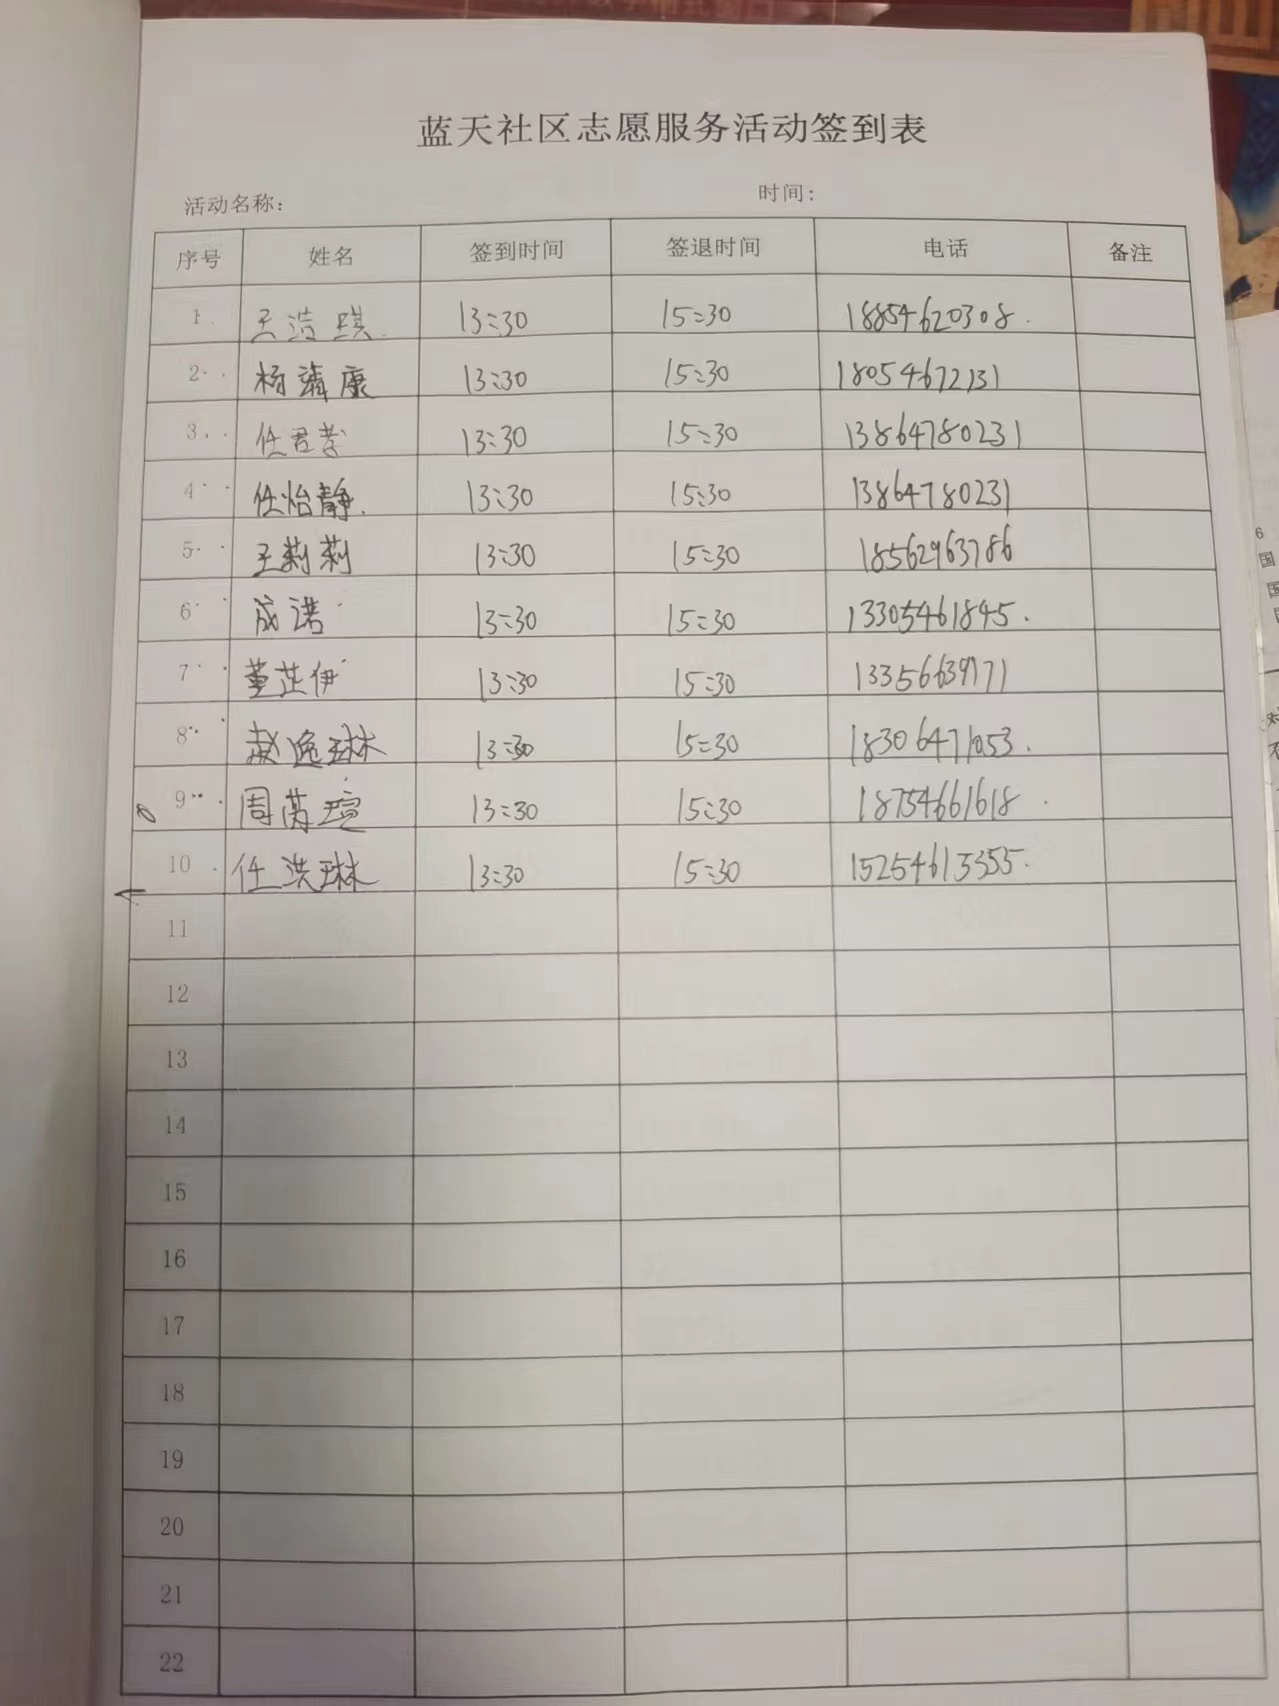 蓝天社区志愿服务活动签到表
活动名称： 时间：
序号 姓名 签到时间 签退时间 电话 备注
1 王洁琪 13:30 15:30 18854620308
2 杨 康 13:30 15:30 18054672131
3 任君 13:30 15:30 13864780231
4 任怡静 13:30 15:30 13864780231
5 王莉莉 13:30 15:30 18562963786
6 成诺 13:30 15:30 13305461845
7 董芷伊 13:30 15:30 13356639171
8 赵逸琳 13:30 15:30 18306471053
9 周 瑄 13:30 15:30 18754661618
10 任洪琳 13:30 15:30
11
12
13
14
15
16
17
18
19
20
21
22
6
国